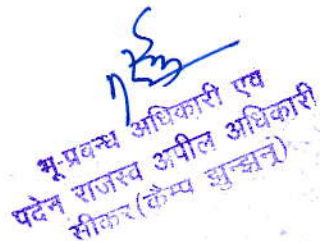 भू-प्रबन्ध अधिकारी एवं
पदेन राजस्व अपील अधिकारी
सीकर (कैम्प झुन्झुनू)